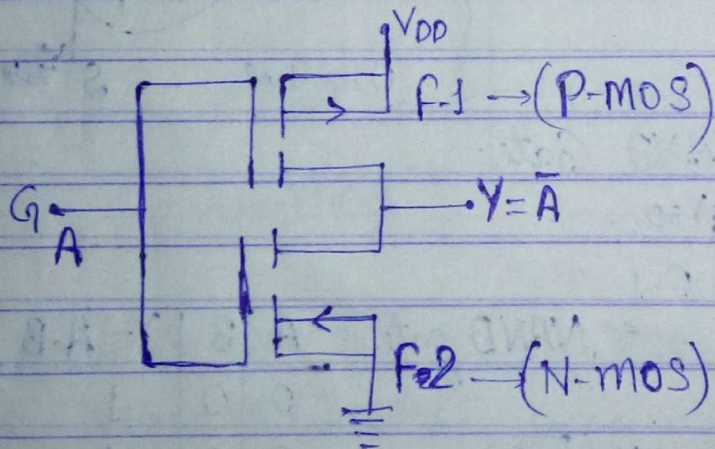 VDD
F-1 → (P-MOS)
G
A
Y = Ā
F-2 → (N-MOS)